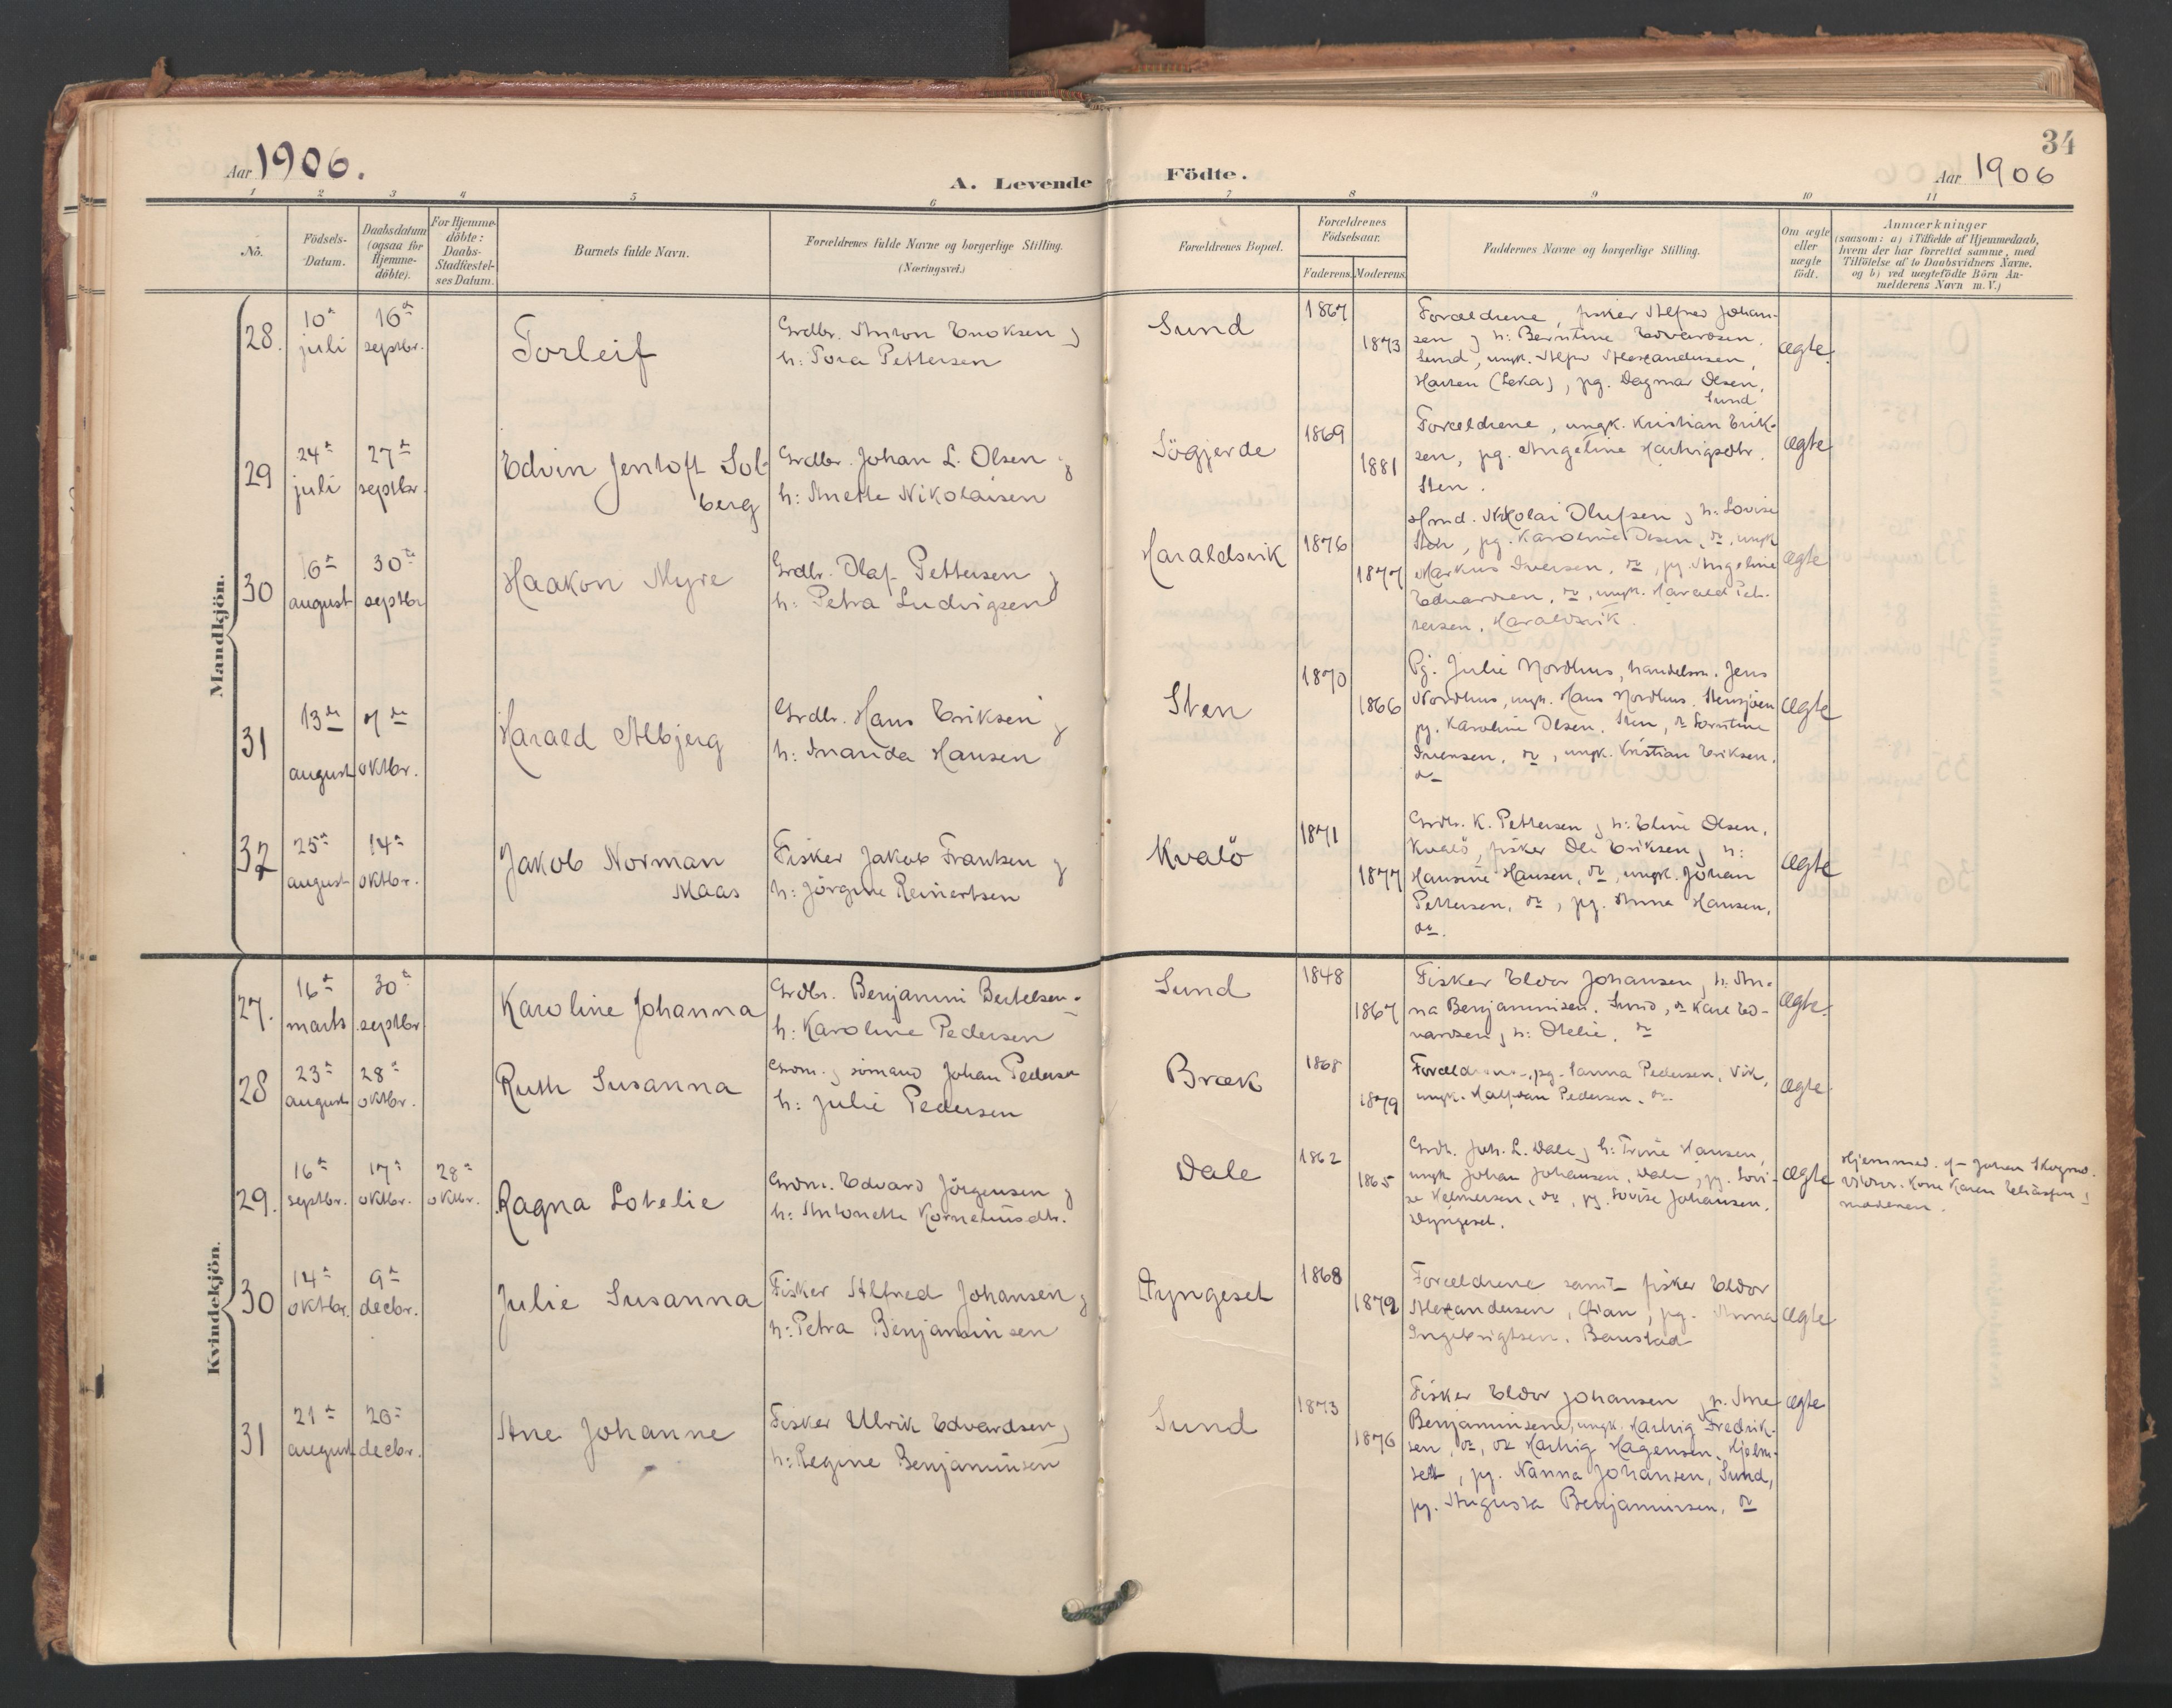 34
Aar 1906.
A. Levende Födte.
Aar 1906
1 2 3 4 5 6 7 8 9 10 11
No.
Födsels-
Datum.
Daabsdatum
(ogsaa for
Hjemme-
döbte).
For Hjemme-
döbte:
Daabs-
Stadfæstel-
ses Datum.
Barnets fulde Navn.
Forældrenes fulde Navne og borgerlige Stilling.
(Næringsvei.)
Forældrenes Bopæl.
Forældrenes
Födselsaar.
Faderens. Moderens.
Faddernes Navne og borgerlige Stilling.
Om ægte
eller
uægte
födt.
Anmærkninger
(saasom: a) i Tilfælde af Hjemmedaab,
hvem der har forrettet samme, med
Tilföielse af to Daabsvidners Navne.
og b) ved uægtefödte Börn An-
melderens Navn m. V.)
Mandkjön.
28.
10de juli
16de septbr.
Torleif
Grdbr. Anton Enoksen og
h: Tora Pettersen
Sund
1867
1873
Forældrene, fisker Alfred Johan-
sen og h: Berntine Edvardsen,
Sund, ungk. Alfr Alexandersen,
(Leka), pg. Dagmar Olsen,
Sund
ægte.
29
24de juli
27de septbr.
Edvin Jentoft Sol-
berg
Grdbr. Johan L. Olsen og
h: Anette Nikolaisen
Sögjerde
1869
1881
Forældrene, ungk. Kristian Erik-
sen, pg. Angeline Hartvigsdtr.
Sten.
ægte
30
16de august
30te septbr
Haakon Myre
Grdbr. Olaf Pettersen og
h: Petra Ludvigsen
Haraldsvik
1876
1877
Nikolai Olufsen og h: Lovise
Sten, pg. Karoline Olsen, do, ungk
Markus Iversen, do, pg. Angeline
Edvardsen, do, ungk. Harald Pet-
tersen, Haraldsvik.
ægte
31
13de august
7de oktbr.
Harald Albjerg
Grdbr. Hans Eriksen og
h: Inanda Hansen
Sten
1870
1866
Pg. Julie Nordhus, handelsm. Jens
Nordhus, ungk. Hans Nordhus.
pg. Karoline Olsen, Sten, do
Iversen, do, ungk. Kristian Eriksen,
do
ægte
32
25de august
14de oktbr.
Jakob Norman
Maas
Fisker Jakob Frantsen og
h: Jörgine Reinertsen
Kvalö
1871
1877
Grdbr. K. Pettersen og h: Eline Olsen,
Kvalö, fisker Ole Eriksen og h:
Hansine Hansen, do, ungk. Johan
Pettersen, do, pg. Anna Hansen,
do.
ægte
Kvindekjön.
27.
16de marts
30te septbr
Karoline Johanna
Grdbr. Benjamin Bertelsen
h: Karoline Pedersen
Sund
1848
1867
Fisker Eldor Johansen og h: An-
na Benjaminsen, Sund, do Karl Ed-
vardsen og h: Otelie, do
ægte.
28
23de august
28de oktbr.
Ruth Susanna
Grdm. og sömand Johan Pedersen
h: Julie Pedersen
Bræk
1868
1879
Forældrene, pg. Sanna Pedersen, Vik,
ungk. Halfdan Pedersen, do.
ægte.
29.
16de septbr.
17de oktbr.
28de oktbr.
Ragna Lotelie
Grdm. Edvard Jörgensen og
h: Antonette Korneliusdtr.
Dale
1862
1865
Grdbr. Joh. L. Dale og h: Trine Hansen,
ungk Johan Johansen, Dale, pg. Lovi-
se Helmersen, do, pg. Lovise Johansen,
Dyngeset.
ægte
Hjemmed. af Johan
Vidner. Kone Karen Eliassen og
moderen.
30
14de oktbr.
9de decbr.
Julie Susanna
Fisker Alfred Johansen og
h: Petra Benjaminsen
Dyngeset
1868
1879
Forældrene samt fisker Eldor
Alexandersen, pg. Anna
Ingebrigtsen, Baustad
ægte
31
21de august
26de decbr.
Ane Johanne
Fisker Ulrik Edvardsen og
h: Regine Benjaminsen
Sund
1873
1876
Fisker Eldor Johansen og h. Ane
Benjaminsen, ungk. Hartvig Fredrik-
sen, do, do Hartvig Hagensen, Hjelm-
set, pg. Nanna Johansen, Sund,
pg. Augusta Benjaminsen, do
ægte